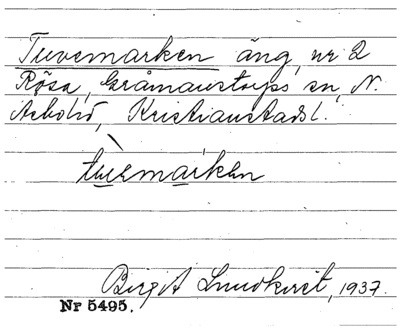 Tuvemarken äng, nr 2
Rösa, Gråmanstorps sn, N.
Åsbo hd, Kristianstads l.
tuvemarken
Birgit Lundkvist, 1937.
Nr 5495.